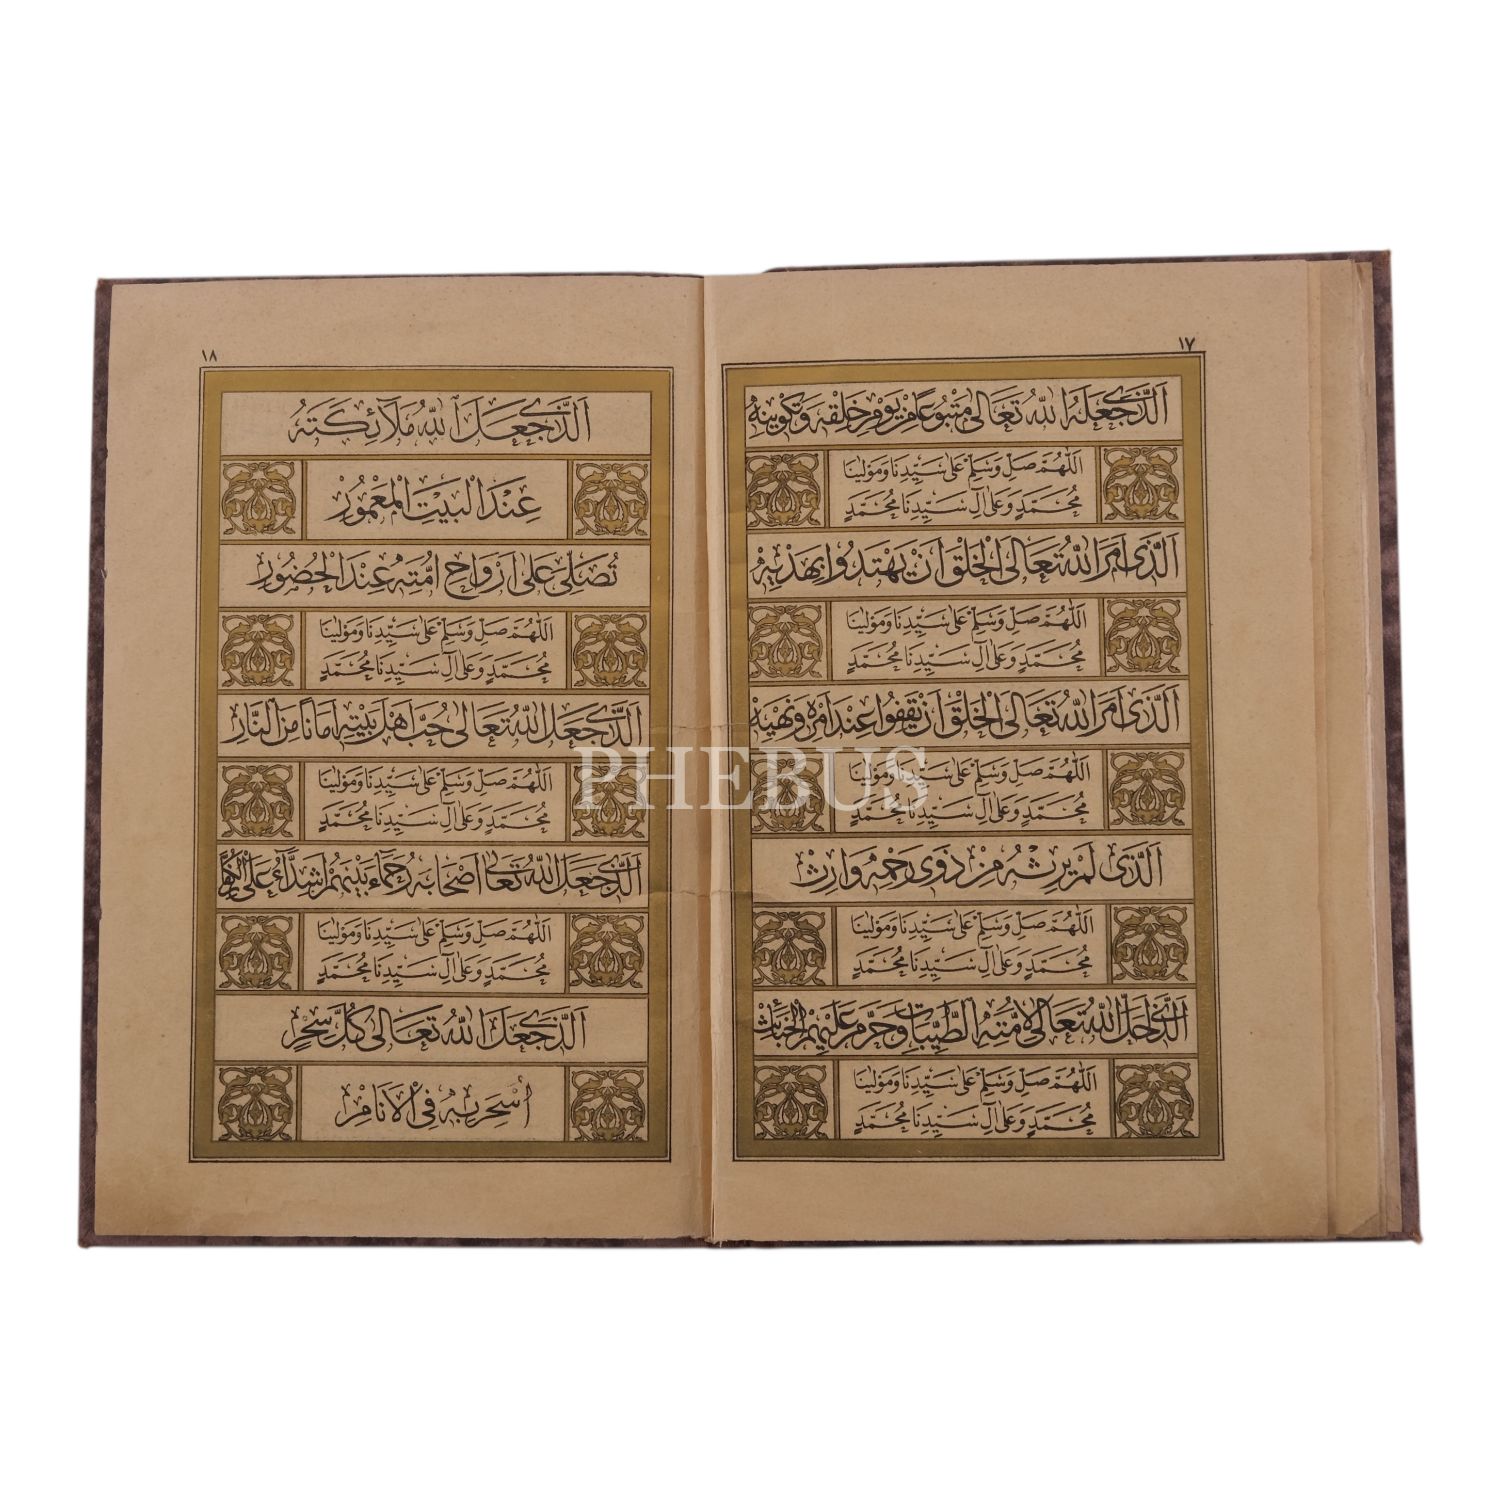 ١٧
اَلَّذٖى جَعَلَهُ اللّٰهُ تَعَالٰى مَتْبُوعًا مِنْ يَوْمِ خَلْقِهِ وَتَكْوِينِهِ
اَللّٰهُمَّ صَلِّ وَسَلِّمْ عَلٰى سَيِّدِنَا وَمَوْلٰينَا
مُحَمَّدٍ وَعَلٰى اٰلِ سَيِّدِنَا مُحَمَّدٍ
اَلَّذٖى اَمَرَ اللّٰهُ تَعَالَى الْخَلْقَ اَنْ يَهْتَدُوا بِهَدْيِهِ
اَللّٰهُمَّ صَلِّ وَسَلِّمْ عَلٰى سَيِّدِنَا وَمَوْلٰينَا
مُحَمَّدٍ وَعَلٰى اٰلِ سَيِّدِنَا مُحَمَّدٍ
اَلَّذٖى اَمَرَ اللّٰهُ تَعَالَى الْخَلْقَ اَنْ يَقِفُوا عِنْدَ اَمْرِهِ وَنَهْيِهِ
اَللّٰهُمَّ صَلِّ وَسَلِّمْ عَلٰى سَيِّدِنَا وَمَوْلٰينَا
مُحَمَّدٍ وَعَلٰى اٰلِ سَيِّدِنَا مُحَمَّدٍ
اَلَّذٖى لَمْ يَرِثْهُ مِنْ ذَوِى رَحِمِهِ وَارِثٌ
اَللّٰهُمَّ صَلِّ وَسَلِّمْ عَلٰى سَيِّدِنَا وَمَوْلٰينَا
مُحَمَّدٍ وَعَلٰى اٰلِ سَيِّدِنَا مُحَمَّدٍ
اَلَّذٖى اَحَلَّ اللّٰهُ تَعَالٰى لِاُمَّتِهِ الطَّيِّبَاتِ وَحَرَّمَ عَلَيْهِمُ الْخَبَائِثَ
اَللّٰهُمَّ صَلِّ وَسَلِّمْ عَلٰى سَيِّدِنَا وَمَوْلٰينَا
مُحَمَّدٍ وَعَلٰى اٰلِ سَيِّدِنَا مُحَمَّدٍ
١٨
اَلَّذٖى جَعَلَ اللّٰهُ مَلَآئِكَتَهُ
عِنْدَ الْبَيْتِ الْمَعْمُورِ
تُصَلِّى عَلٰى اَرْوَاحِ اُمَّتِهِ عِنْدَ الْحُضُورِ
اَللّٰهُمَّ صَلِّ وَسَلِّمْ عَلٰى سَيِّدِنَا وَمَوْلٰينَا
مُحَمَّدٍ وَعَلٰى اٰلِ سَيِّدِنَا مُحَمَّدٍ
اَلَّذٖى جَعَلَ اللّٰهُ تَعَالٰى حُبَّ اَهْلِ بَيْتِهِ اَمَانًا مِنَ النَّارِ
اَللّٰهُمَّ صَلِّ وَسَلِّمْ عَلٰى سَيِّدِنَا وَمَوْلٰينَا
مُحَمَّدٍ وَعَلٰى اٰلِ سَيِّدِنَا مُحَمَّدٍ
اَلَّذٖى جَعَلَ اللّٰهُ تَعَالٰى اَصْحَابَهُ رُحَمَاءَ بَيْنَهُمْ اَشِدَّاءَ عَلَى الْكُفَّارِ
اَللّٰهُمَّ صَلِّ وَسَلِّمْ عَلٰى سَيِّدِنَا وَمَوْلٰينَا
مُحَمَّدٍ وَعَلٰى اٰلِ سَيِّدِنَا مُحَمَّدٍ
اَلَّذٖى جَعَلَ اللّٰهُ تَعَالٰى كُلَّ سِحْرٍ
اُسْحِرَ بِهِ فِى الْاَنَامِ
PHEBUS